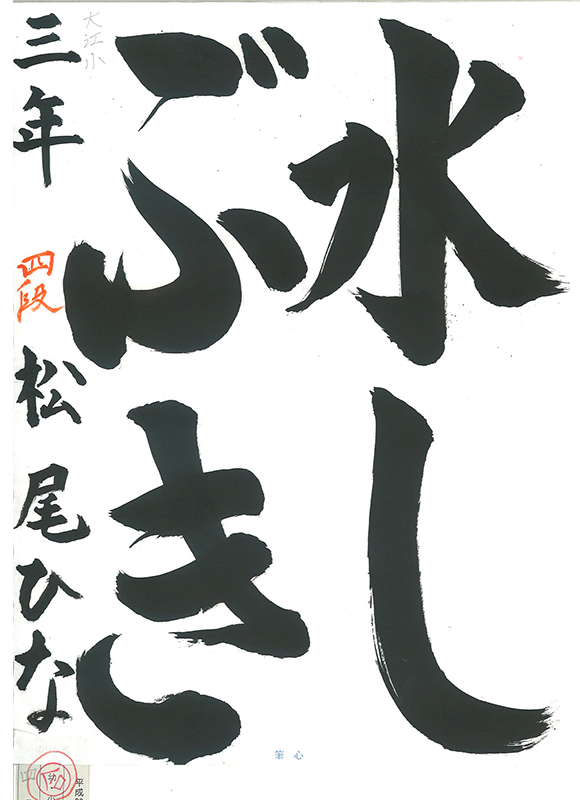 水し
ぶき
三年 四段 松尾ひな
大江小
心筆
平成